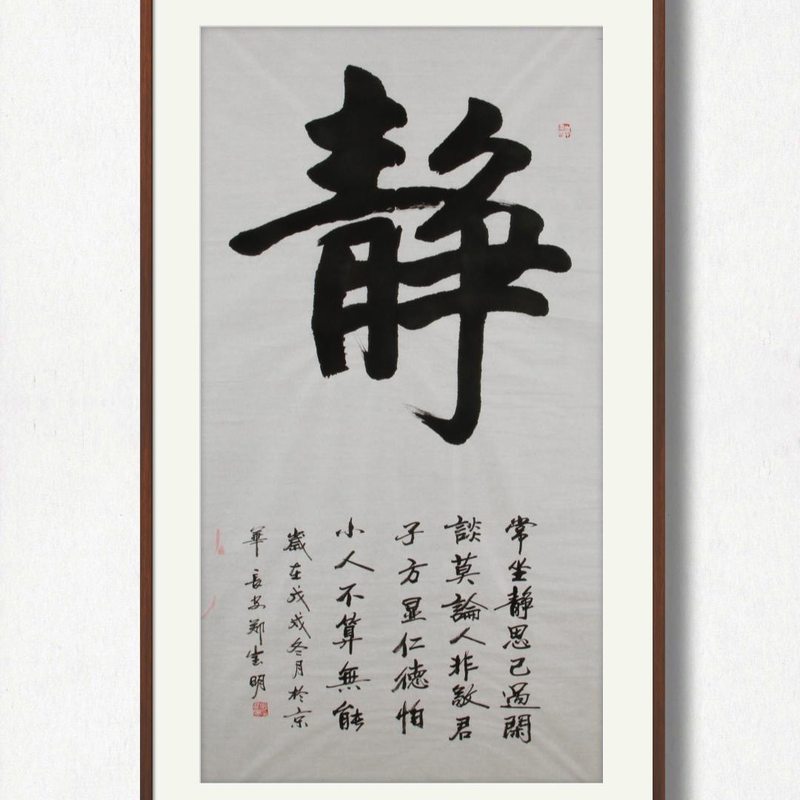 静
常坐静思己過閑
談莫論人非敬君
子方显仁德怕
小人不算無能
歲在戊戌冬月於京
華長安鄭明